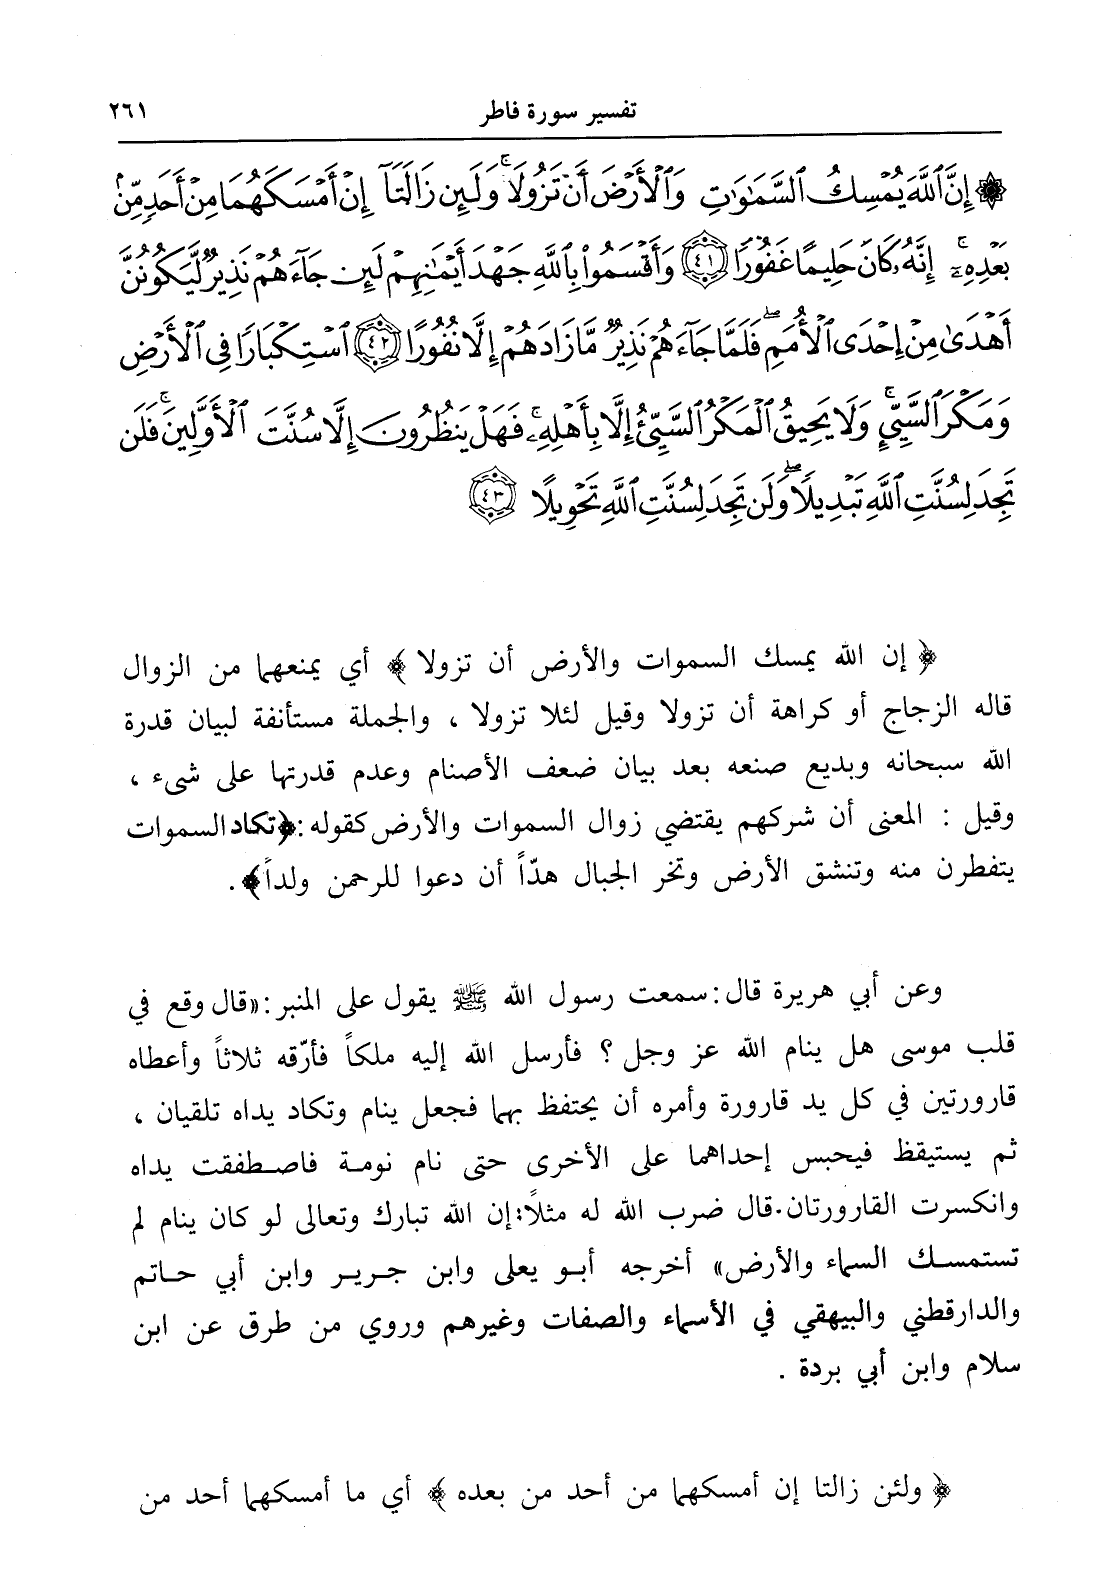 تفسير سورة فاطر ٢٦١
۞ إِنَّ ٱللَّهَ يُمْسِكُ ٱلسَّمَٰوَٰتِ وَٱلْأَرْضَ أَن تَزُولَا ۚ وَلَئِن زَالَتَآ إِنْ أَمْسَكَهُمَا مِنْ أَحَدٍ مِّنۢ
بَعْدِهِۦٓ ۚ إِنَّهُۥ كَانَ حَلِيمًا غَفُورًا ﴿٤١﴾ وَأَقْسَمُوا۟ بِٱللَّهِ جَهْدَ أَيْمَٰنِهِمْ لَئِن جَآءَهُمْ نَذِيرٌ لَّيَكُونُنَّ
أَهْدَىٰ مِنْ إِحْدَى ٱلْأُمَمِ ۖ فَلَمَّا جَآءَهُمْ نَذِيرٌ مَّا زَادَهُمْ إِلَّا نُفُورًا ﴿٤٢﴾ ٱسْتِكْبَارًا فِى ٱلْأَرْضِ
وَمَكْرَ ٱلسَّيِّئِ ۚ وَلَا يَحِيقُ ٱلْمَكْرُ ٱلسَّيِّئُ إِلَّا بِأَهْلِهِۦ ۚ فَهَلْ يَنظُرُونَ إِلَّا سُنَّتَ ٱلْأَوَّلِينَ ۚ فَلَن
تَجِدَ لِسُنَّتِ ٱللَّهِ تَبْدِيلًا ۖ وَلَن تَجِدَ لِسُنَّتِ ٱللَّهِ تَحْوِيلًا ﴿٤٣﴾
﴿ إن الله يمسك السموات والأرض أن تزولا ﴾ أي يمنعهما من الزوال
قاله الزجاج أو كراهة أن تزولا وقيل لئلا تزولا ، والجملة مستأنفة لبيان قدرة
الله سبحانه وبديع صنعه بعد بيان ضعف الأصنام وعدم قدرتها على شىء ،
وقيل : المعنى أن شركهم يقتضي زوال السموات والأرض كقوله :﴿تكاد السموات
يتفطرن منه وتنشق الأرض وتخر الجبال هدّاً أن دعوا للرحمن ولداً﴾.
وعن أبي هريرة قال : سمعت رسول الله ﷺ يقول على المنبر : «قال وقع في
قلب موسى هل ينام الله عز وجل ؟ فأرسل الله إليه ملكاً فأرّقه ثلاثاً وأعطاه
قارورتين في كل يد قارورة وأمره أن يحتفظ بهما فجعل ينام وتكاد يداه تلقيان ،
ثم يستيقظ فيحبس إحداهما على الأخرى حتى نام نومة فاصطفقت يداه
وانكسرت القارورتان.قال ضرب الله له مثلاً: إن الله تبارك وتعالى لو كان ينام لم
تستمسك السماء والأرض» أخرجه أبو يعلى وابن جرير وابن أبي حاتم
والدارقطني والبيهقي في الأسماء والصفات وغيرهم وروي من طرق عن ابن
سلام وابن أبي بردة .
﴿ ولئن زالتا إن أمسكهما من أحد من بعده ﴾ أي ما أمسكهما أحد من